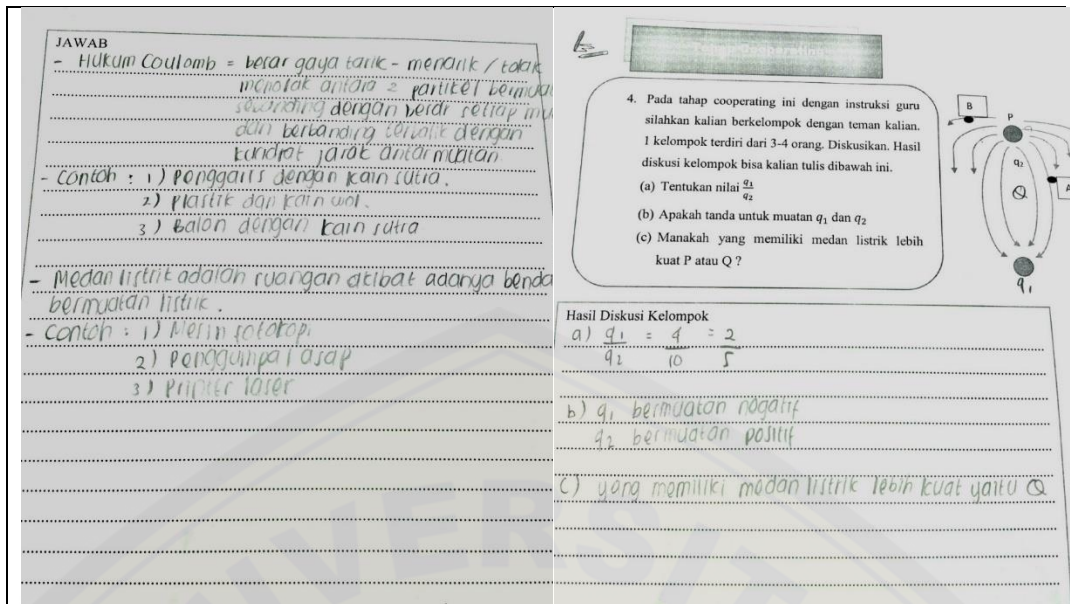 JAWAB
- Hukum Coulomb = besar gaya tarik-menarik / tolak
menolak antara 2 partikel bermua
sebanding dengan besar setiap mu
dan berbanding terbalik dengan
kuadrat jarak antar muatan
- Contoh : 1) Penggaris dengan kain sutra.
2) Plastik dan kain wol.
3) Balon dengan kain sutra
- Medan listrik adalah ruangan akibat adanya benda
bermuatan listrik.
- Contoh : 1) Mesin fotokopi
2) Penggumpal asap
3) Printer laser
Tahap Cooperating
4. Pada tahap cooperating ini dengan instruksi guru
silahkan kalian berkelompok dengan teman kalian.
1 kelompok terdiri dari 3-4 orang. Diskusikan. Hasil
diskusi kelompok bisa kalian tulis dibawah ini.
(a) Tentukan nilai q1/q2
(b) Apakah tanda untuk muatan q1 dan q2
(c) Manakah yang memiliki medan listrik lebih
kuat P atau Q ?
B
P
q2
A
Q
q1
Hasil Diskusi Kelompok
a) q1/q2 = 4/10 = 2/5
b) q1 bermuatan negatif
q2 bermuatan positif
c) yang memiliki medan listrik lebih kuat yaitu Q
UNIVERSIT